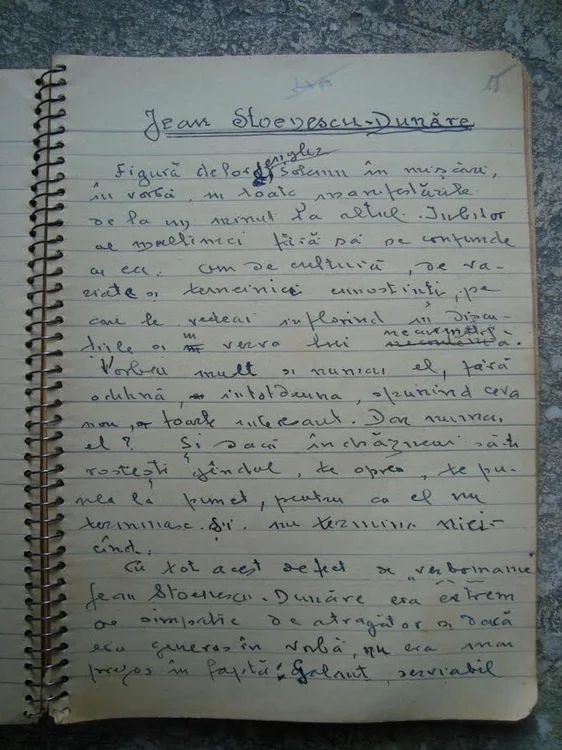 Jean Stoenescu-Dunăre
Figură de lord englez, solemn în mișcări,
în vorbă, în toate manifestările
de la un minut la altul. Iubitor
al mulțimei fără să se confunde
cu ea. Om de cultură, de va-
riate și temeinice cunoștinți, pe
care le vedeai înflorind în discu-
țiile și în verva lui
Vorbea mult și numai el, fără
odihnă, întotdeauna, spunînd ceva
nou, toate interesant. Dar numai
el? Și dacă îndrăzneai să-ți
rostești gîndul, te oprea, te pu-
nea la punct, pentru că el nu
terminase. Și nu termina nici-
cînd.
Cu tot acest defect de „verbomanie”
Jean Stoenescu-Dunăre era extrem
de simpatic de atrăgător și dacă
era generos în vorbă, nu era mai
prejos în faptă: Galant, serviabil